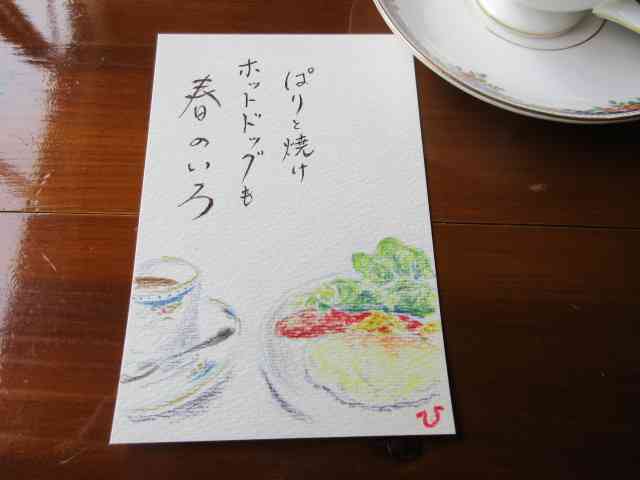 ぱりと焼け
ホットドッグも
春のいろ
ひ